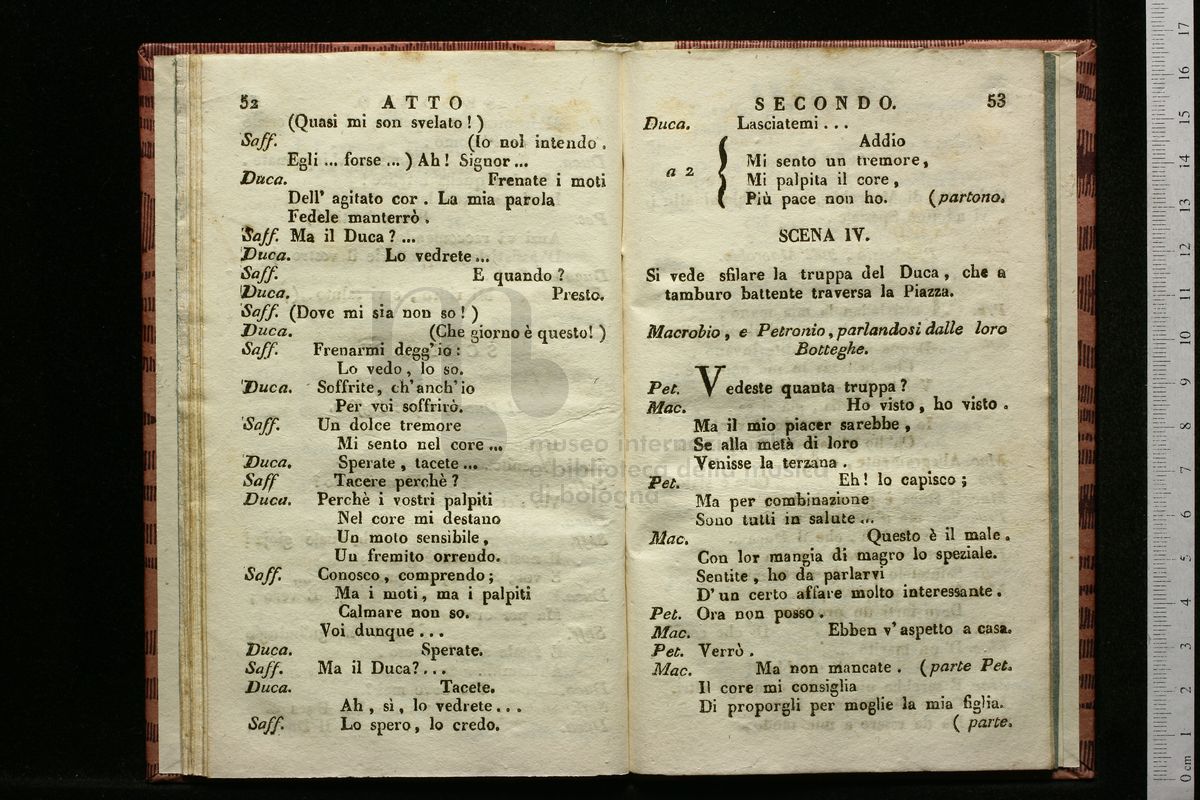 52 ATTO
(Quasi mi son svelato!)
Saff. (Io nol intendo.
Egli ... forse ...) Ah! Signor ...
Duca. Frenate i moti
Dell' agitato cor. La mia parola
Fedele manterrò.
Saff. Ma il Duca? ...
Duca. Lo vedrete ...
Saff. E quando?
Duca. Presto.
Saff. (Dove mi sia non so!)
Duca. (Che giorno è questo!)
Saff. Frenarmi degg' io:
Lo vedo, lo so.
Duca. Soffrite, ch' anch' io
Per voi soffrirò.
Saff. Un dolce tremore
Mi sento nel core ...
Duca. Sperate, tacete ...
Saff Tacere perchè?
Duca. Perchè i vostri palpiti
Nel core mi destano
Un moto sensibile,
Un fremito orrendo.
Saff. Conosco, comprendo;
Ma i moti, ma i palpiti
Calmare non so.
Voi dunque ...
Duca. Sperate.
Saff. Ma il Duca? ...
Duca. Tacete.
Ah, sì, lo vedrete ...
Saff. Lo spero, lo credo.
SECONDO. 53
Duca. Lasciatemi ...
Addio
a 2 Mi sento un tremore,
Mi palpita il core,
Più pace non ho. (partono.
SCENA IV.
Si vede sfilare la truppa del Duca, che a
tamburo battente traversa la Piazza.
Macrobio, e Petronio, parlandosi dalle loro
Botteghe.
Pet. Vedeste quanta truppa?
Mac. Ho visto, ho visto.
Ma il mio piacer sarebbe,
Se alla metà di loro
Venisse la terzana.
Pet. Eh! lo capisco;
Ma per combinazione
Sono tutti in salute ...
Mac. Questo è il male.
Con lor mangia di magro lo speziale.
Sentite, ho da parlarvi
D' un certo affare molto interessante.
Pet. Ora non posso.
Mac. Ebben v' aspetto a casa.
Pet. Verrò.
Mac. Ma non mancate. (parte Pet.
Il core mi consiglia
Di proporgli per moglie la mia figlia.
(parte.
museo internazionale
e biblioteca della musica
di bologna
0 cm 1 2 3 4 5 6 7 8 9 10 11 12 13 14 15 16 17